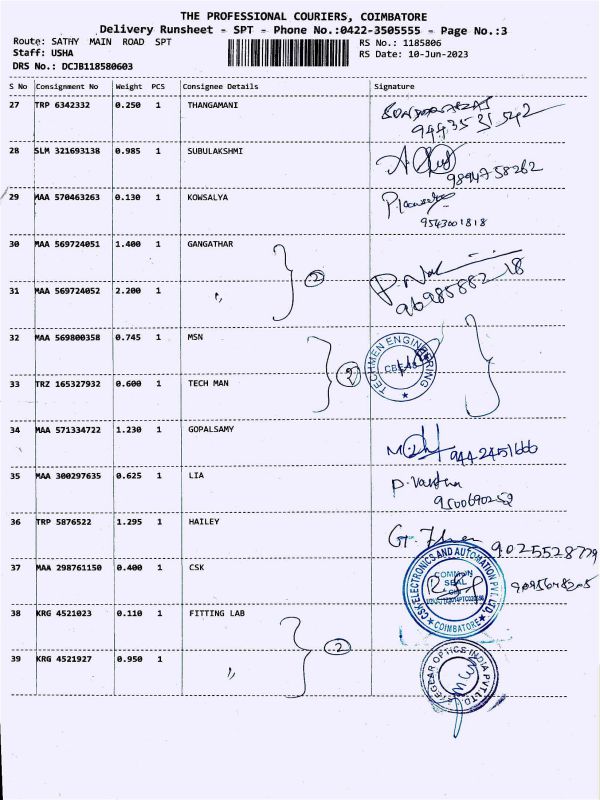 THE PROFESSIONAL COURIERS, COIMBATORE
Delivery Runsheet - SPT - Phone No.:0422-3505555 - Page No.:3
Route: SATHY MAIN ROAD SPT
RS No.: 1185806
Staff: USHA
RS Date: 10-Jun-2023
DRS No.: DCJB118580603
S No Consignment No Weight PCS Consignee Details Signature
27 TRP 6342332 0.250 1 THANGAMANI
28 SLM 321693138 0.985 1 SUBULAKSHMI
9894758262
29 MAA 570463263 0.130 1 KOWSALYA
9543001818
30 MAA 569724051 1.400 1 GANGATHAR
2
31 MAA 569724052 2.200 1 "
32 MAA 569800358 0.745 1 MSN
TECHMEN ENGINEERING
CBE
2
33 TRZ 165327932 0.600 1 TECH MAN
34 MAA 571334722 1.230 1 GOPALSAMY
9442451666
35 MAA 300297635 0.625 1 LIA
9500690252
36 TRP 5876522 1.295 1 HAILEY
9025528779
37 MAA 298761150 0.400 1 CSK
CSK ELECTRONICS AND AUTOMATION PVT. LTD.
COMMON
SEAL
COIMBATORE
38 KRG 4521023 0.110 1 FITTING LAB
2
39 KRG 4521927 0.950 1 "
OPTICS INDIA PVT LTD